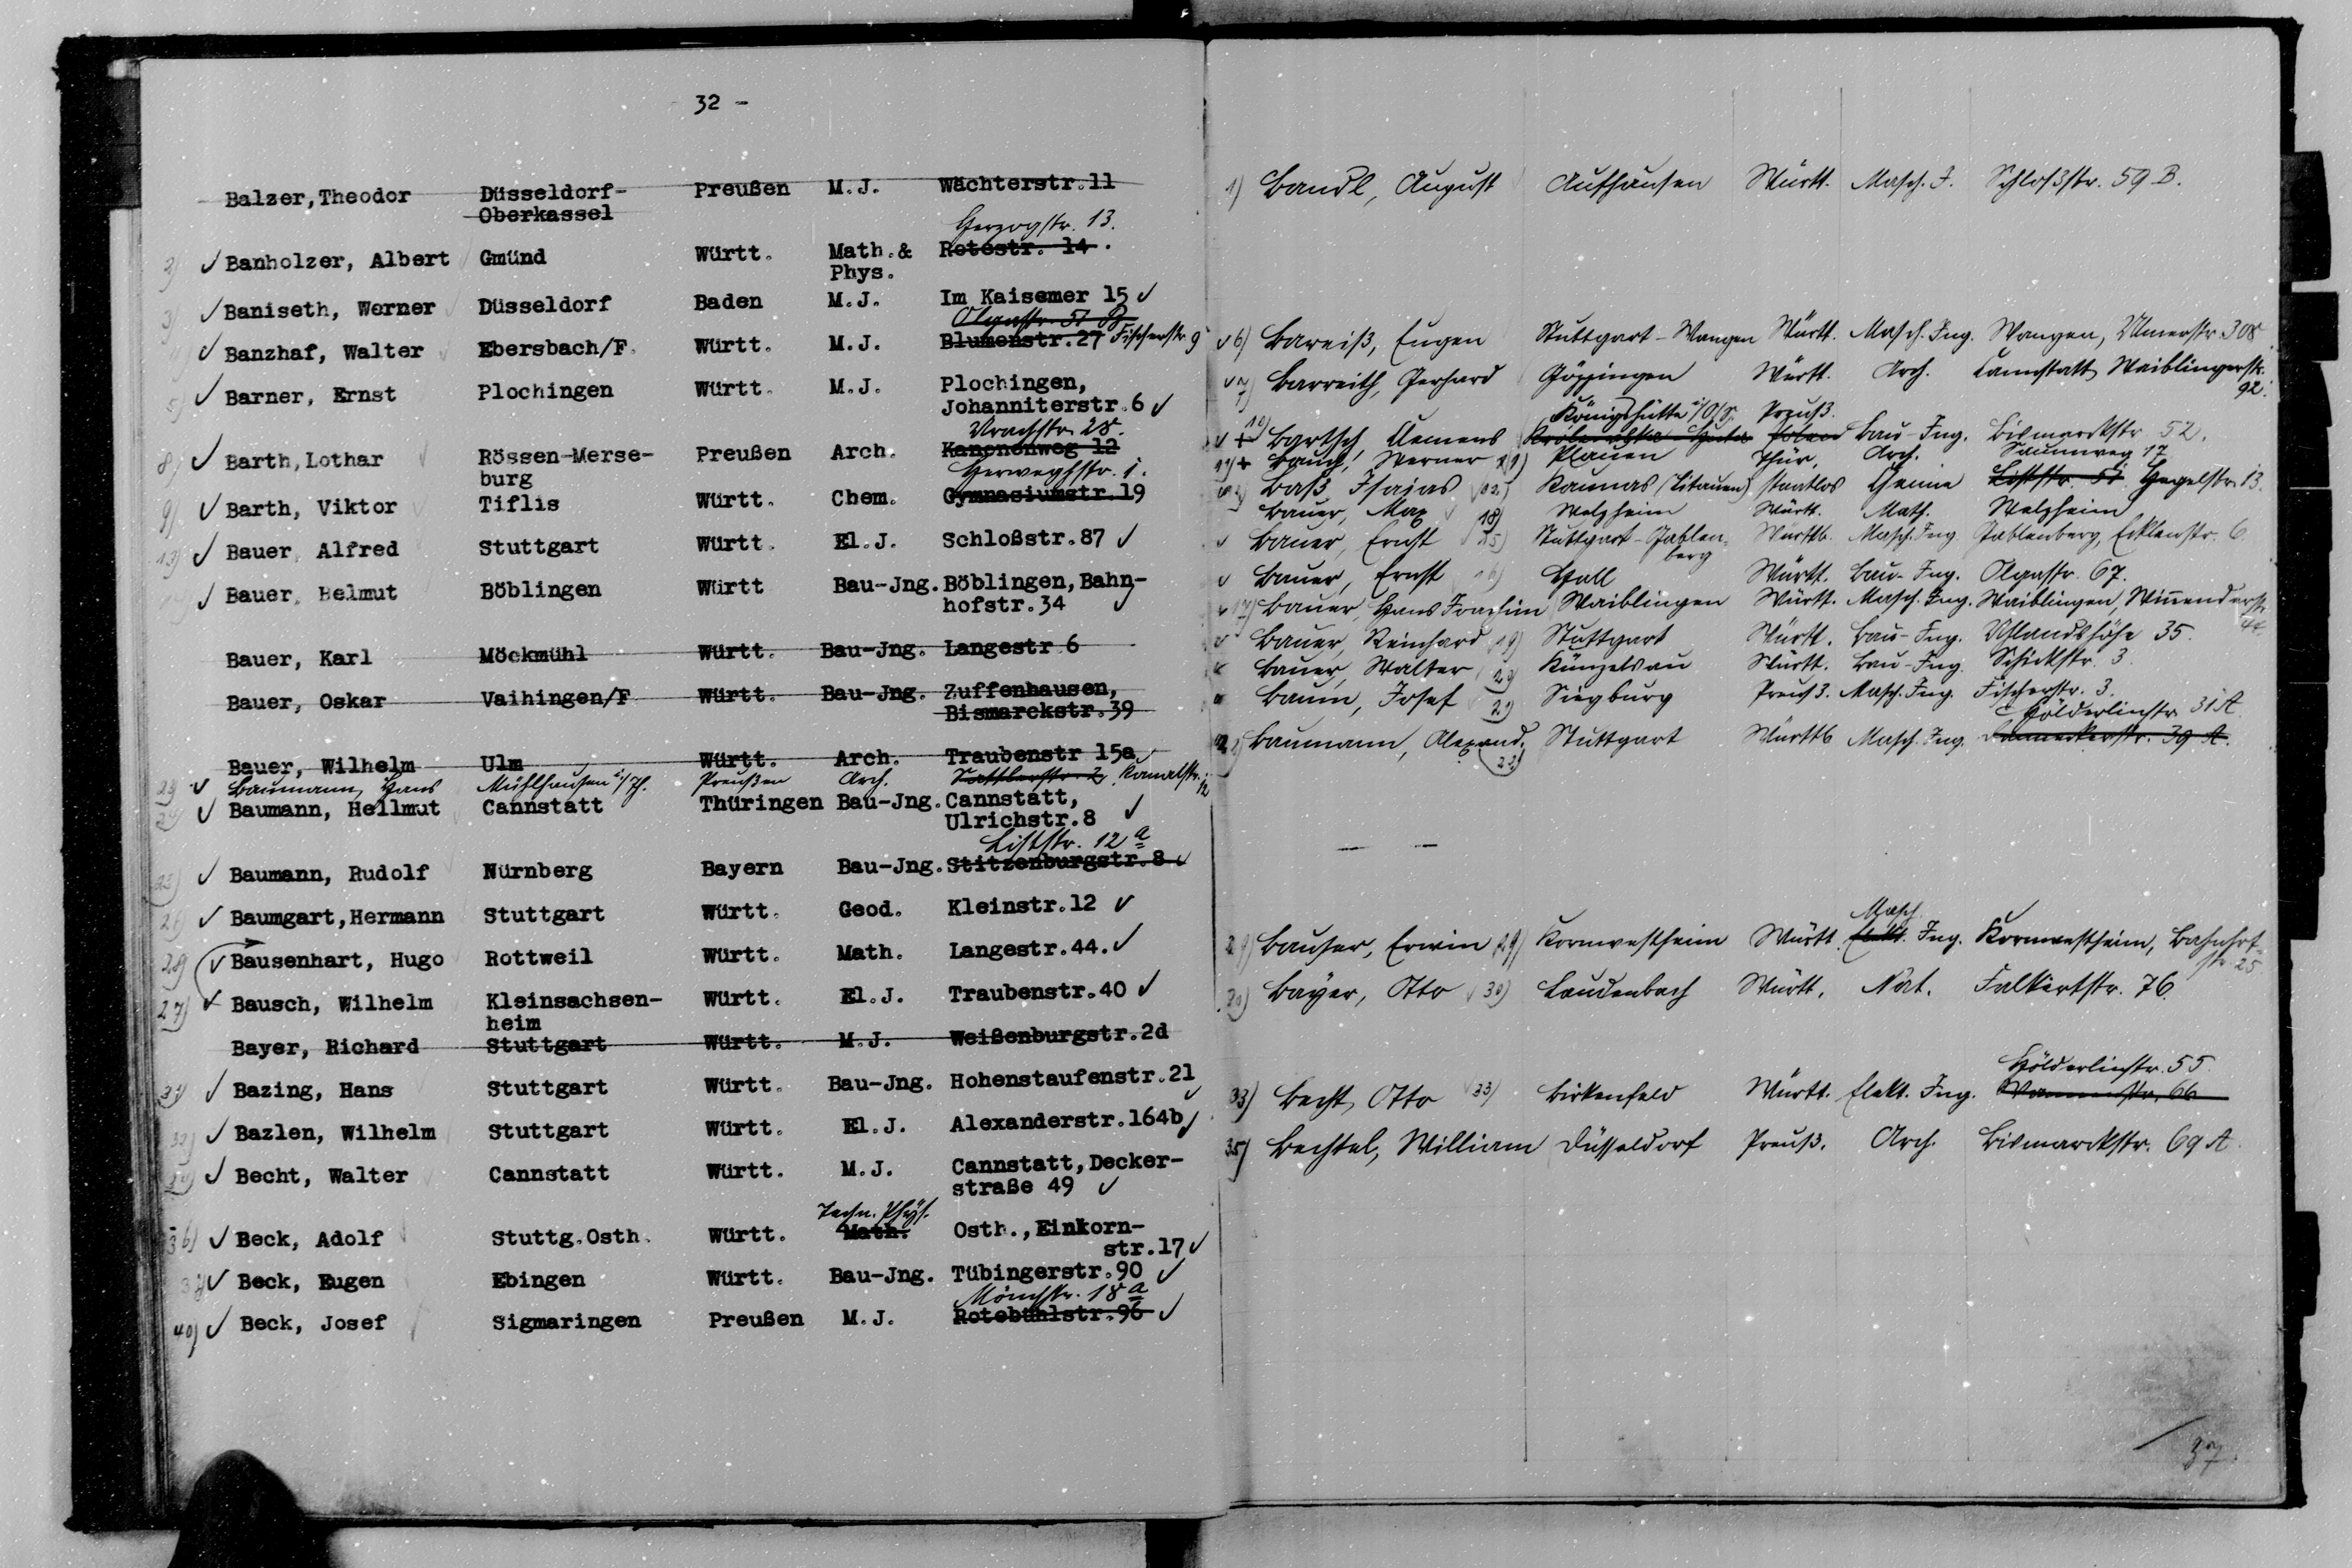 32 -
Balzer, Theodor Düsseldorf- Preußen M.J. Wächterstr.11
Oberkassel
Herzogstr. 13.
2) Banholzer, Albert Gmünd Württ. Math.& Rotestr. 14.
Phys.
3) Baniseth, Werner Düsseldorf Baden M.J. Im Kaisemer 15
Olgastr. 51 B
4) Banzhaf, Walter Ebersbach/F. Württ. M.J. Blumenstr.27 Fischerstr. 9
5) Barner, Ernst Plochingen Württ. M.J. Plochingen,
Johanniterstr.6
Urachstr. 28.
8) Barth, Lothar Rössen-Merse- Preußen Arch. Kanonenweg 12
burg
Herweghstr. 1.
9) Barth, Viktor Tiflis Württ. Chem. Gymnasiumstr.19
13) Bauer, Alfred Stuttgart Württ. El.J. Schloßstr.87
14) Bauer, Helmut Böblingen Württ Bau-Jng. Böblingen, Bahn-
hofstr.34
Bauer, Karl Möckmühl Württ. Bau-Jng. Langestr 6
Bauer, Oskar Vaihingen/F Württ. Bau-Jng. Zuffenhausen,
Bismarckstr.39
Bauer, Wilhelm Ulm Württ. Arch. Traubenstr 15a
23 Baumann, Hans Mühlhausen i/Th. Preußen Arch. Sattlerstr. 2. Kanalstr. 12
24) Baumann, Hellmut Cannstatt Thüringen Bau-Jng. Cannstatt,
Ulrichstr.8
Liststr. 12 a
25) Baumann, Rudolf Nürnberg Bayern Bau-Jng. Stitzenburgstr.8
26) Baumgart, Hermann Stuttgart Württ. Geod. Kleinstr.12
28) Bausenhart, Hugo Rottweil Württ. Math. Langestr.44.
27) Bausch, Wilhelm Kleinsachsen- Württ. El.J. Traubenstr.40
heim
Bayer, Richard Stuttgart Württ. M.J. Weißenburgstr.2d
31) Bazing, Hans Stuttgart Württ. Bau-Jng. Hohenstaufenstr.21
32) Bazlen, Wilhelm Stuttgart Württ. El.J. Alexanderstr.164b
34) Becht, Walter Cannstatt Württ. M.J. Cannstatt, Decker-
straße 49
Techn. Phys.
36) Beck, Adolf Stuttg.Osth. Württ. Math. Osth., Einkorn-
str.17
Beck, Eugen Ebingen Württ. Bau-Jng. Tübingerstr.90
Mönchstr. 18 a
40) Beck, Josef Sigmaringen Preußen M.J. Rotebühlstr.96
1) Bandl, August Aufhausen Württ. Masch. J. Schloßstr. 59 B.
6) Bareiß, Eugen Stuttgart-Wangen Württ. Masch. Ing. Wangen, Ulmerstr. 308
7) Barreith, Gerhard Göppingen Württ. Arch. Cannstatt Waiblingerstr.
92.
Königshütte i/O/S. Preuß.
10) Bartsch, Clemens Polen Bau-Ing. Bismarckstr 52.
11) Bauch, Werner Plauen Thür. Arch. 17
12) Baß, Isaias Kaunas (Litauen) staatlos Chemie Liststr. 51 Hegelstr. 13.
Bauer, Max 18) Welzheim Württ. Math. Welzheim
Bauer, Ernst 15) Stuttgart-Gablen- Württb. Masch. Ing. Gablenberg, Ecklenstr. 6.
berg
Bauer, Ernst 16) Hall Württ. Bau-Ing. Olgastr. 67.
17) Bauer, Hans Joachim Waiblingen Württ. Masch. Ing. Waiblingen, Winnenderstr.
44.
Bauer, Reinhard 19) Stuttgart Württ. Bau-Ing. Uhlandshöhe 35.
Bauer, Walter 20 Künzelsau Württ. Bau-Ing. Schickstr. 3.
Baum, Josef 21) Siegburg Preuß. Masch. Ing. Fischerstr. 3.
Hölderlinstr. 31 A.
22) Baumann, Alexand. Stuttgart Württb Masch. Ing. Danneckerstr. 39 A.
22)
— —
Masch.
29) Bauser, Erwin 29) Kornwestheim Württ. Elekt. Ing. Kornwestheim, Bahnhof-
str. 25
30) Bayer, Otto 30) Laudenbach Württ. Nat. Falkertstr. 76.
Hölderlinstr. 55.
33) Becht, Otto 33) Birkenfeld Württ. Elekt. Ing. 66
35) Bechtel, William Düsseldorf Preuß. Arch. Bismarckstr. 69 A.
37.